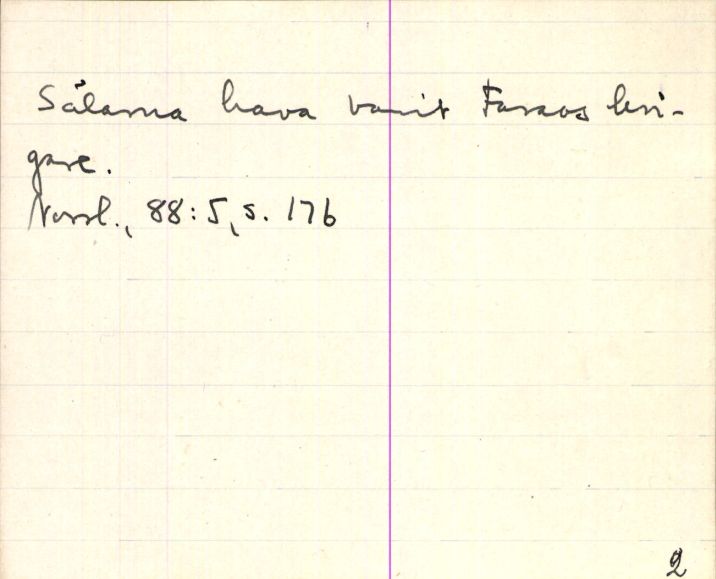 Sälarna hava varit Faraos kri-
gare.
Norrl., 88:5, s. 176
2